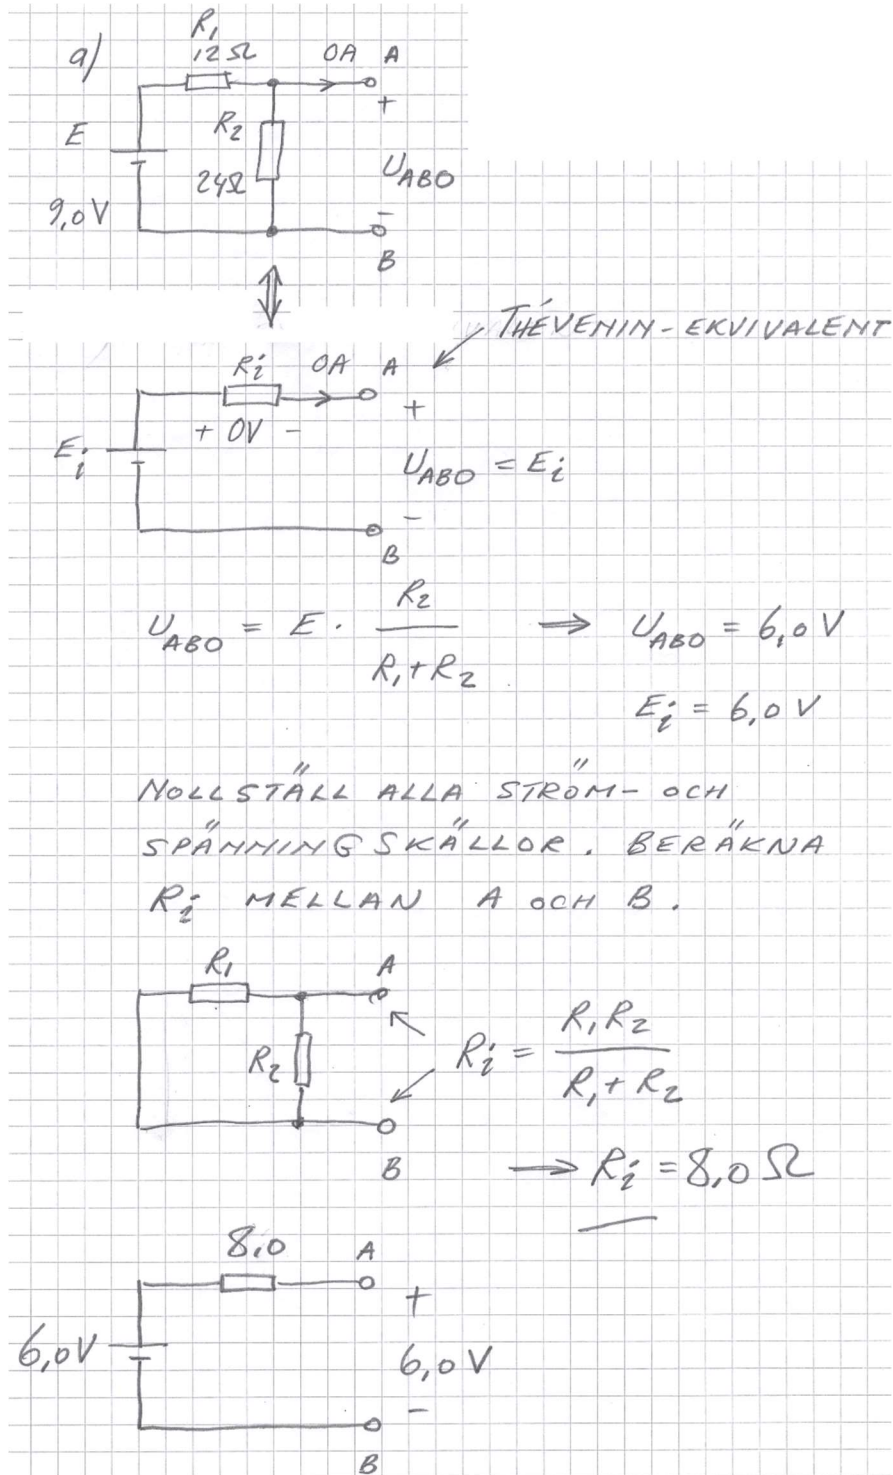 a)
R₁
12Ω
0A
A
+
E
R₂
24Ω
U_ABO
9,0V
-
B
THÉVENIN-EKVIVALENT
Ri
0A
A
+
+ 0V -
Ei
U_ABO = Ei
-
B
U_ABO = E · R₂ / (R₁+R₂) → U_ABO = 6,0 V
Ei = 6,0 V
NOLLSTÄLL ALLA STRÖM- OCH
SPÄNNINGSKÄLLOR. BERÄKNA
Ri MELLAN A OCH B.
R₁
A
R₂
Ri = R₁R₂ / (R₁+R₂)
B
→ Ri = 8,0 Ω
8,0
A
+
6,0V
6,0 V
-
B